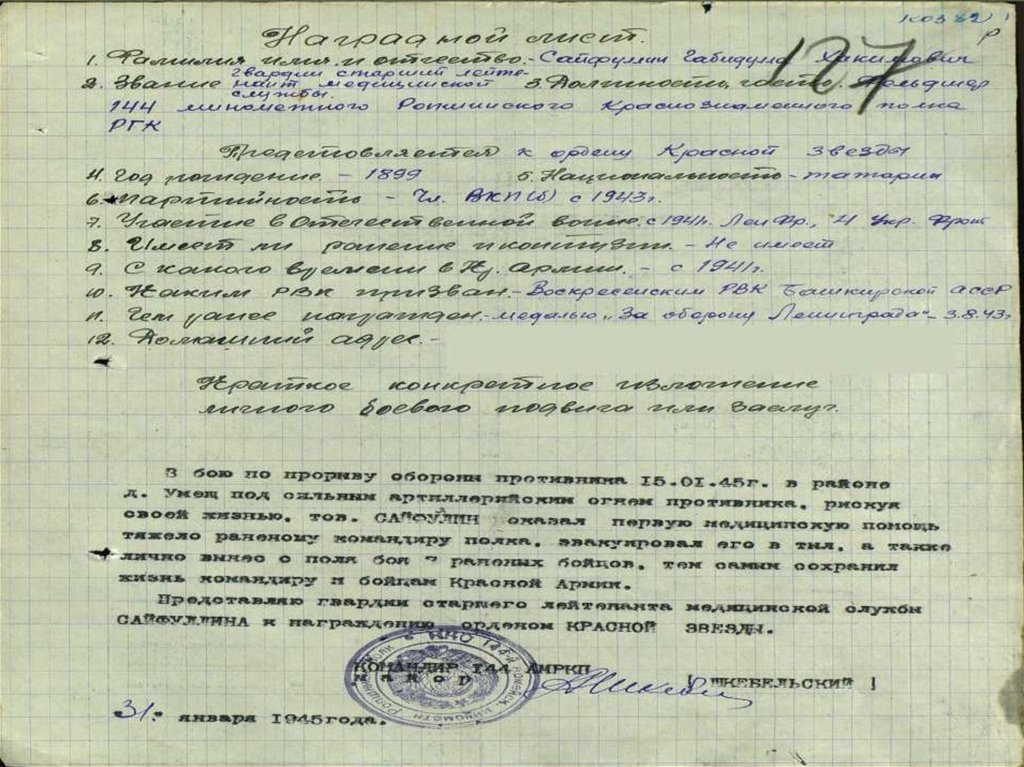 Наградной лист.
127
1. Фамилия имя и отчество. - Сайфулин Габидула Хакимович
2. Звание гвардии старший лейтенант медицинской службы. 3. Должность, часть. Фельдшер
144 минометного Ропшинского Краснознаменного полка
РГК
Представляется к ордену Красной звезды
4. Год рождение. - 1899 5. Национальность - татарин
6. Партийность - Чл. ВКП(б) с 1943г.
7. Участие в Отечественной войне. с 1941г. Лен Фр., 4 Укр. Фронт
8. Имеет ли ранение и контузии. - Не имеет
9. С какого времени в Кр. Армии. - с 1941г.
10. Каким РВК призван. - Воскресенским РВК Башкирской АССР
11. Чем ранее награжден. - медалью "За оборону Ленинграда" - 3.8.43г
12. Домашний адрес. -
Краткое конкретное изложение
личного боевого подвига или заслуг.
В бою по прорыву обороны противника 15.01.45г. в районе
д. Умещ под сильным артиллерийским огнем противника, рискуя
своей жизнью, тов. САЙФУЛИН оказал первую медицинскую помощь
тяжело раненому командиру полка, эвакуировал его в тыл, а также
лично вынес с поля боя 7 раненых бойцов, тем самым сохранил
жизнь командиру и бойцам Красной Армии.
Представляю гвардии старшего лейтенанта медицинской службы
САЙФУЛЛИНА к награждению орденом КРАСНОЙ ЗВЕЗДЫ.
КОМАНДИР 144 АМРКП
майор / ШКЕБЕЛЬСКИЙ /
31. января 1945года.